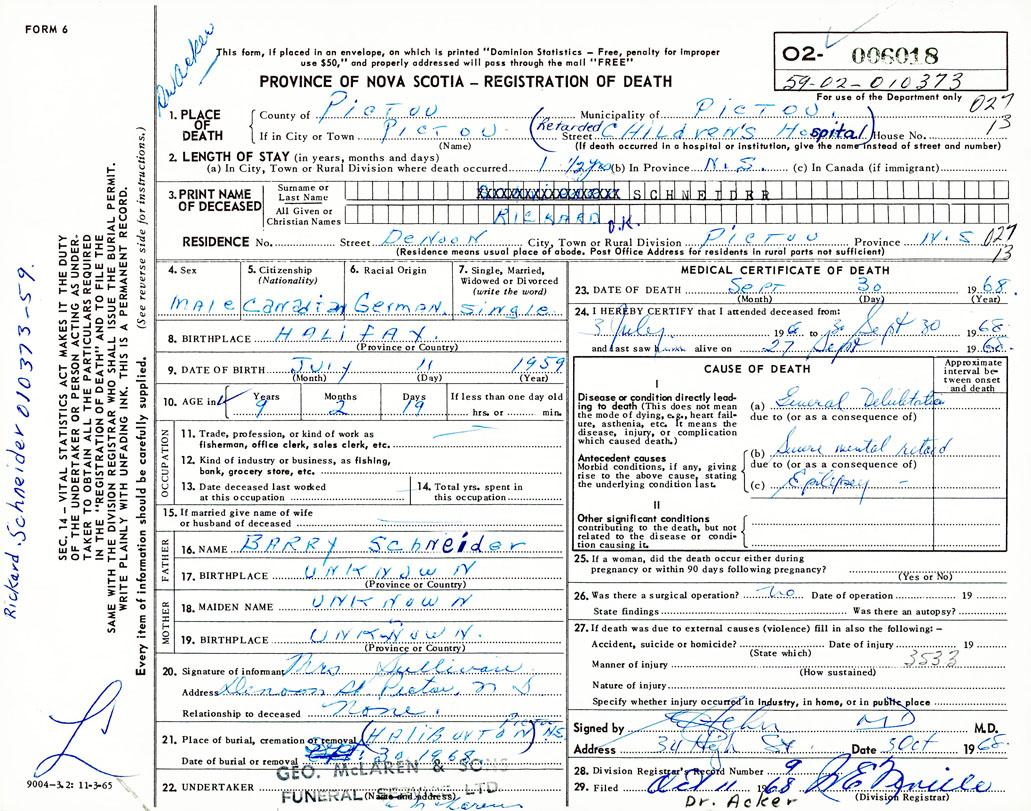 FORM 6
Dr. Acker
This form, if placed in an envelope, on which is printed "Dominion Statistics – Free, penalty for improper
use $50," and properly addressed will pass through the mail "FREE"
PROVINCE OF NOVA SCOTIA – REGISTRATION OF DEATH
O2- 006018
59-02-010373
For use of the Department only
027
13
1. PLACE OF DEATH
County of PICTOU Municipality of PICTOU.
If in City or Town PICTOU (Retarded Street CHILdREN'S Hospital) House No.
(Name) (If death occurred in a hospital or institution, give the name instead of street and number)
2. LENGTH OF STAY (in years, months and days)
(a) In City, Town or Rural Division where death occurred 1 1/2 yrs (b) In Province N.S. (c) In Canada (if immigrant)
3. PRINT NAME OF DECEASED
Surname or Last Name SCHNEIDER
All Given or Christian Names RICKARD O.K.
RESIDENCE No. Street DENOON City, Town or Rural Division PICTOU Province N.S 027
13
(Residence means usual place of abode. Post Office Address for residents in rural parts not sufficient)
4. Sex
male
5. Citizenship (Nationality)
Canadian
6. Racial Origin
German.
7. Single, Married, Widowed or Divorced (write the word)
single
8. BIRTHPLACE HALIFAX.
(Province or Country)
9. DATE OF BIRTH JULY 11 1959
(Month) (Day) (Year)
10. AGE in Years Months Days If less than one day old
9 2 19 hrs. or min.
OCCUPATION
11. Trade, profession, or kind of work as
fisherman, office clerk, sales clerk, etc.
12. Kind of industry or business, as fishing,
bank, grocery store, etc.
13. Date deceased last worked
at this occupation
14. Total yrs. spent in
this occupation
15. If married give name of wife
or husband of deceased
FATHER
16. NAME BARRY Schneider
17. BIRTHPLACE UNKNOWN
(Province or Country)
MOTHER
18. MAIDEN NAME UNKNOWN
19. BIRTHPLACE UNKNOWN.
(Province or Country)
20. Signature of informant Mrs Sullivan
Address Denoon St Pictou, N S
Relationship to deceased None.
21. Place of burial, cremation or removal (HALIBURTON) Pictou NS
Date of burial or removal Sept. 30, 1968.
GEO. McLAREN & SONS
22. UNDERTAKER FUNERAL LTD
(Name and address)
MEDICAL CERTIFICATE OF DEATH
23. DATE OF DEATH Sept 30 1968.
(Month) (Day) (Year)
24. I HEREBY CERTIFY that I attended deceased from:
3 July 196 to Sept 30 1968
and last saw h alive on 27 Sept 1968.
CAUSE OF DEATH
Approximate interval between onset and death
I
Disease or condition directly leading to death (This does not
the mode of dying, e.g., heart failure, asthenia, etc. It means the
disease, injury, or complication
which caused death.)
(a) General Debilitation
due to (or as a consequence of)
Antecedent causes
Morbid conditions, if any, giving
rise to the above cause, stating
the underlying condition last.
(b) Severe mental retard
due to (or as a consequence of)
(c) Epilepsy –
II
Other significant conditions
contributing to the death, but not
related to the disease or condition causing it.
25. If a woman, did the death occur either during
pregnancy or within 90 days following pregnancy?
(Yes or No)
26. Was there a surgical operation? no Date of operation 19
State findings Was there an autopsy?
27. If death was due to external causes (violence) fill in also the following: –
Accident, suicide or homicide? Date of injury 19
(State which) 3533
Manner of injury
(How sustained)
Nature of injury
Specify whether injury occurred in Industry, in home, or in public place
Signed by MD M.D.
Address 34 High St. Date 5 Oct 1968.
28. Division Registrar's Record Number 9
29. Filed Oct 11 1968
(Division Registrar)
Dr. Acker
SEC. 14 – VITAL STATISTICS ACT MAKES IT THE DUTY
OF THE UNDERTAKER OR PERSON ACTING AS UNDERTAKER TO OBTAIN ALL THE PARTICULARS REQUIRED
IN THE "REGISTRATION OF DEATH" AND TO FILE THE
SAME WITH THE DIVISION REGISTRAR WHO SHALL ISSUE THE BURIAL PERMIT.
WRITE PLAINLY WITH UNFADING INK. THIS IS A PERMANENT RECORD.
Every item of information should be carefully supplied. (See reverse side for instructions.)
Rickard Schneider 010373-59.
9004-3.2: 11-3-65